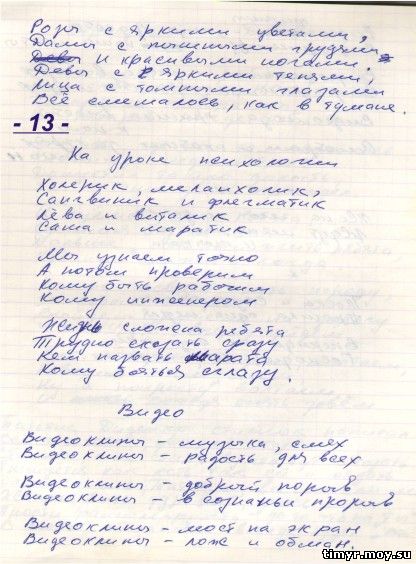 Розы с яркими цветами,
Дамы с пышными грудями
и красивыми ногами.
Девы с яркими тенями,
Лица с томными глазами
Всё смешалось, как в тумане.
- 13 -
На уроке психологии
Холерик, меланхолик,
Сангвиник и флегматик
Лёва и виталик
Саша и маратик
Мы узнаем точно
А потом проверим
Кому быть рабочим
Кому инженером
Жизнь сложена ребята
Трудно сказать сразу
Кем назвать марата
Кому бояться сглазу.
Видео
Видеоклипы - музыка, смех
Видеоклипы - радость для всех
Видеоклипы - добрый порыв
Видеоклипы - в сознаньи прорыв
Видеоклипы - мост на экран
Видеоклипы - лож и обман.
timyr.moy.su